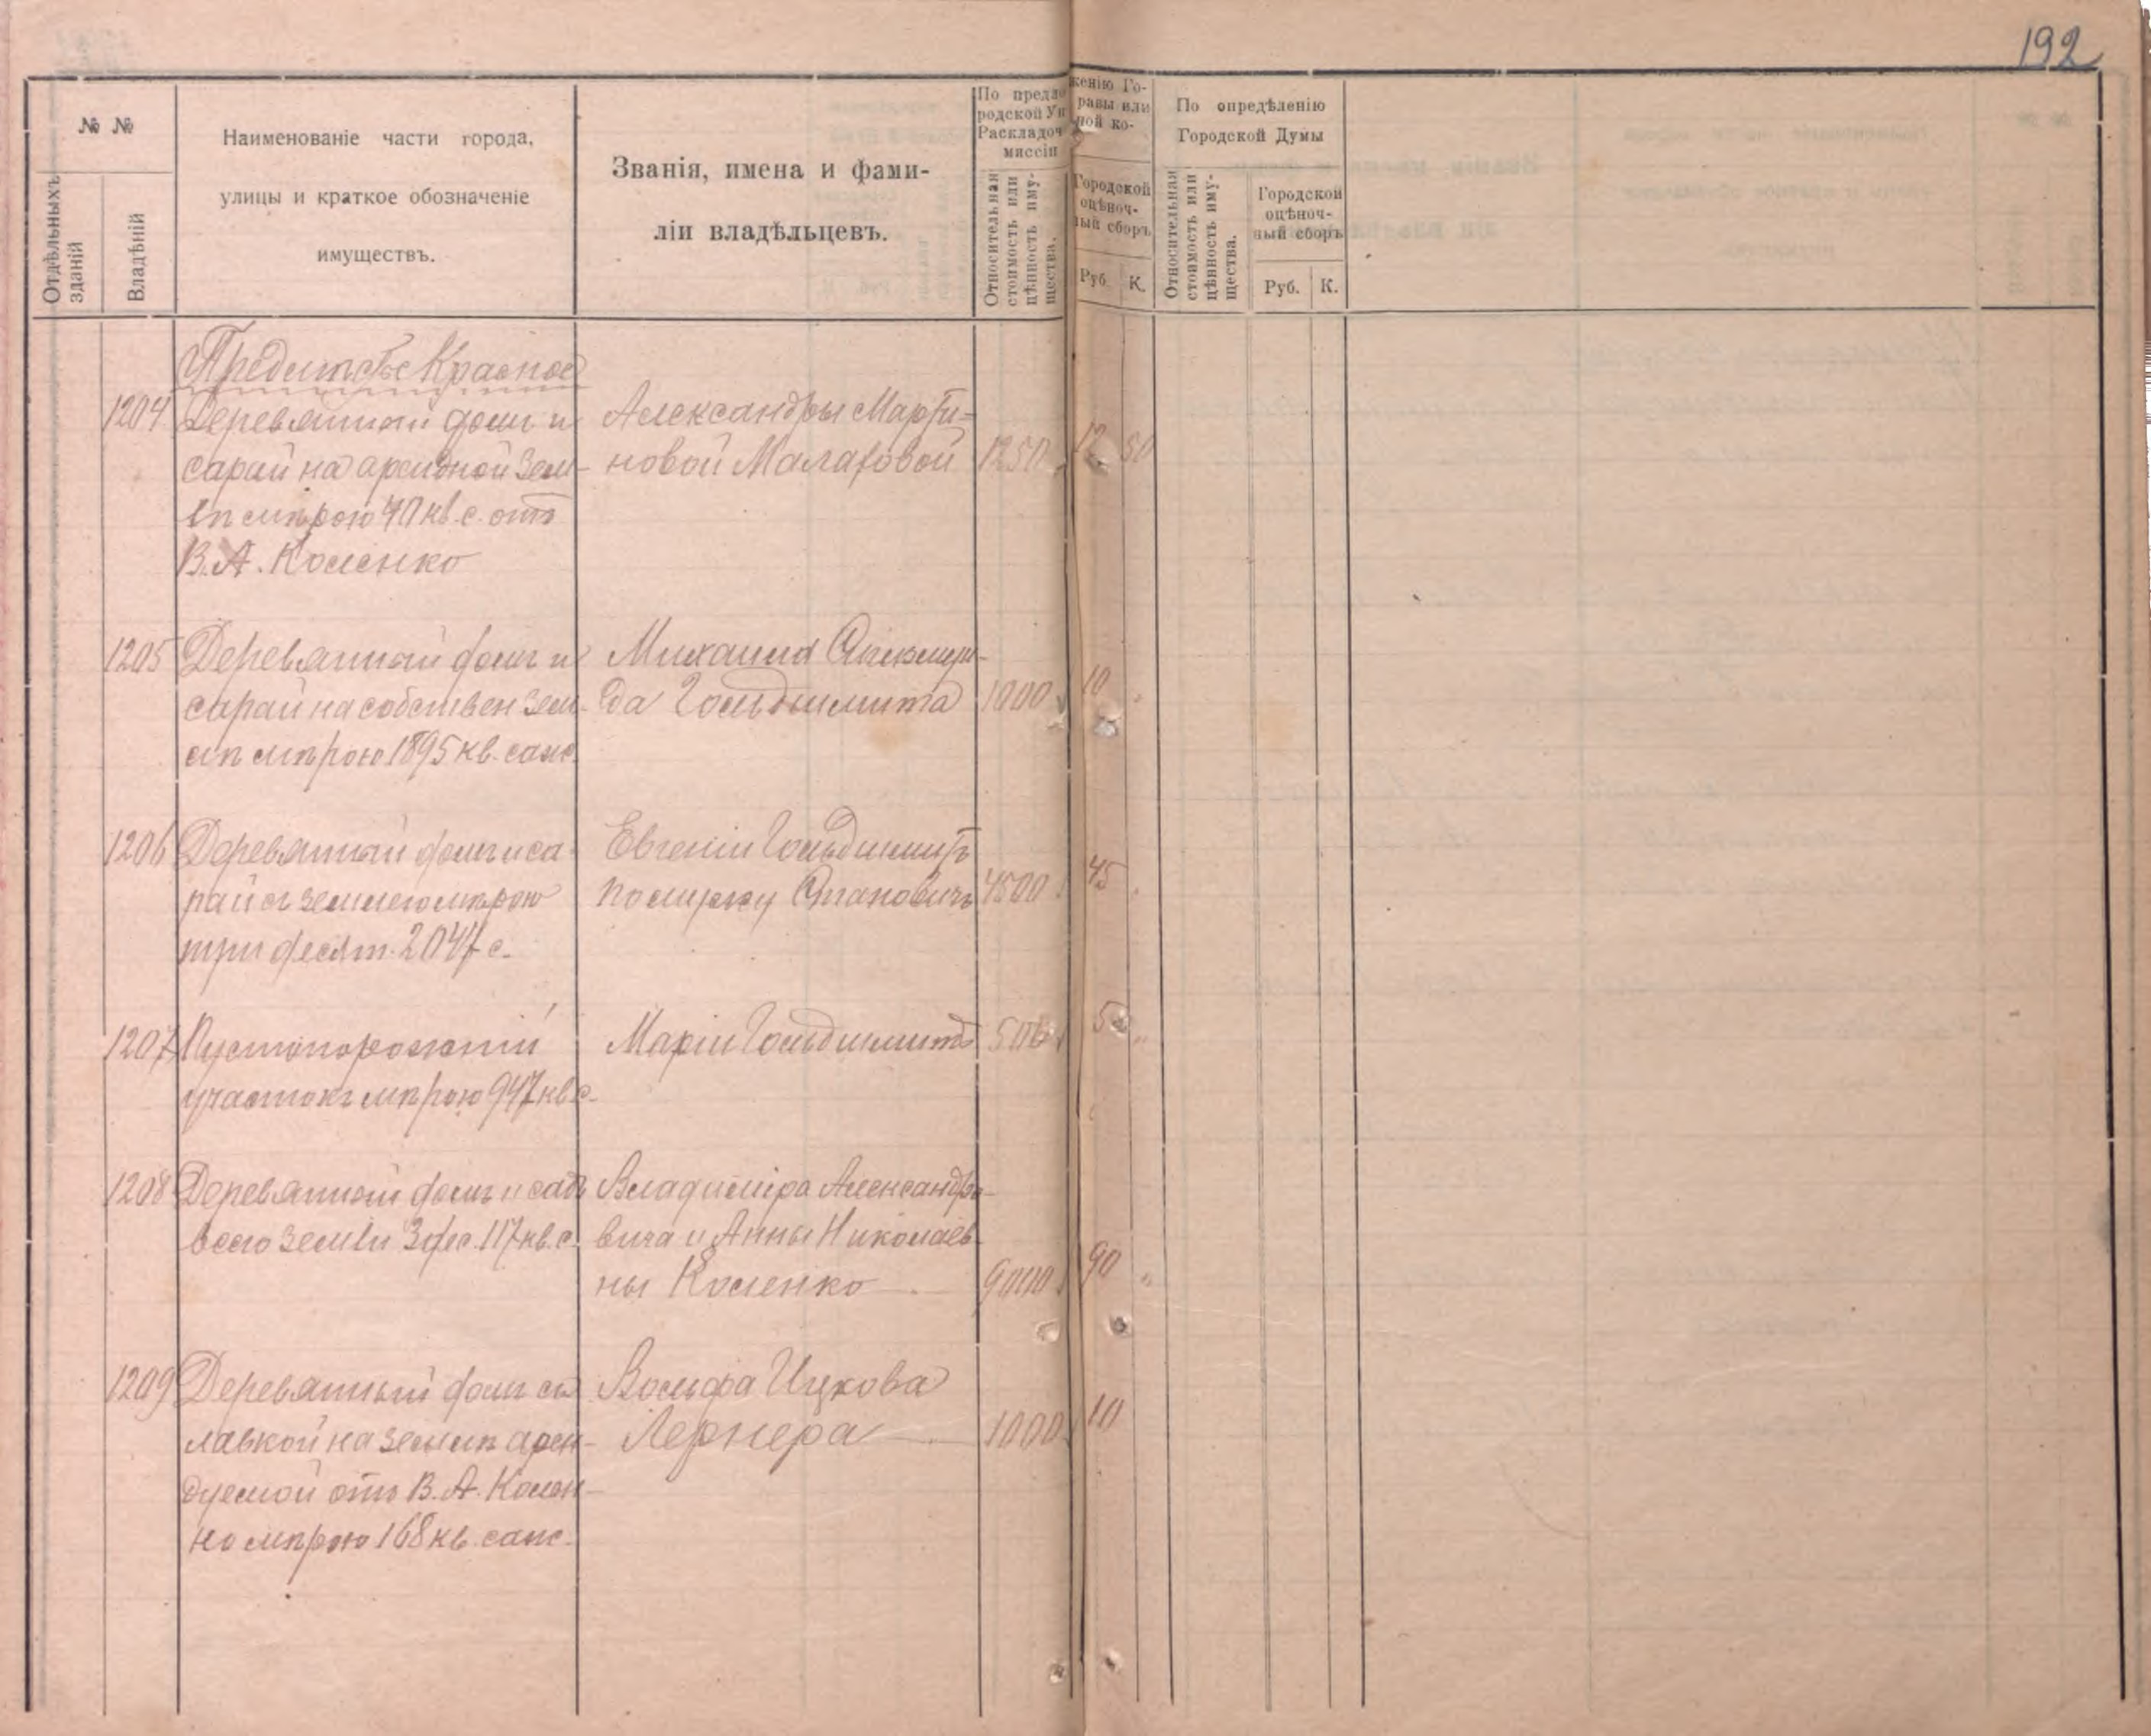 192
№ №
Отдѣльныхъ зданій
Владѣній
Наименованіе части города,
улицы и краткое обозначеніе
имуществъ.
Званія, имена и фами-
ліи владѣльцевъ.
По предло
родской Уп
Раскладоч
миссіи
женію Го-
равы или
ной ко-
Относительная
стоимость или
цѣнность иму-
щества.
Городской
оцѣноч-
ный сборъ
Руб. К.
По опредѣленію
Городской Думы
Относительная
стоимость или
цѣнность иму-
щества.
Городской
оцѣноч-
ный сборъ
Руб. К.
Предмѣстье Красное
1204 Деревянный домъ и
сарай на арендной зем-
лѣ мѣрою 40 кв. с. отъ
В. А. Коленко
Александры Марти-
новой Малаховой 1250 12 50
1205 Деревянный домъ и
сарай на собствен зем-
лѣ мѣрою 1895 кв. саж.
Михаила
да Гольдшмита 1000 10 "
1206 Деревянный домъ и са-
рай съ землею мѣрою
три десят. 2044 с.
Евгеніи Гольдшмитъ
по мужу Станевичъ 4500 45 "
1207 Пустопорожній
участокъ мѣрою 947 кв с.
Маріи Гольдшмитъ 500 5 "
1208 Деревянный домъ и садъ
всего земли 3 дес. 117 кв. с.
Владиміра Александро-
вича и Анны Николаев-
ны Коленко 9000 90 "
1209 Деревянный домъ съ
лавкой на землѣ арен-
дуемой отъ В. А. Колен-
ко мѣрою 168 кв. саж.
Вольфа Ицкова
Лернера 1000 10